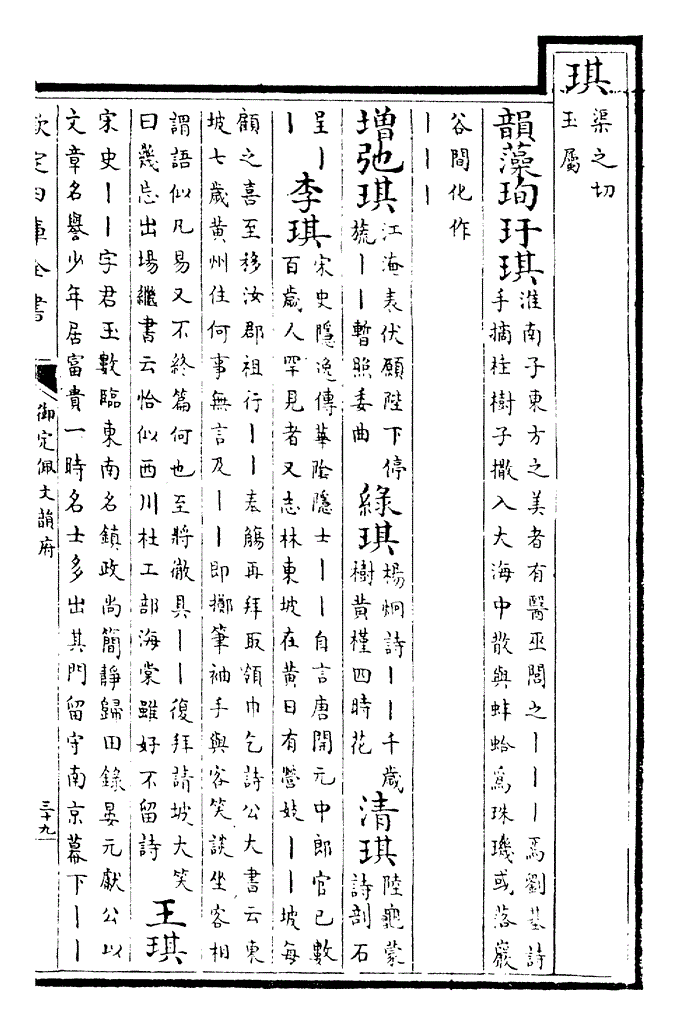 琪
渠之切
玉屬
韻藻珣玗琪
淮南子東方之美者有醫巫閭之丨丨丨焉劉基詩
手摘柱樹子撒入大海中散與蚌蛤爲珠璣或落巖
谷間化作
丨丨丨
增弛琪
江淹表伏願陛下停
旒丨丨暫照委曲
綠琪
楊炯詩丨丨千歲
樹黄槿四時花
清琪
陸龜蒙
詩剖石
呈丨
丨
李琪
宋史隱逸傳華陰隱士丨丨自言唐開元中郎官已數
百歲人罕見者又志林東坡在黄日有營妓丨丨坡每
顧之喜至移汝郡祖行丨丨奉觴再拜取領巾乞詩公大書云東
坡七歲黄州住何事無言及丨丨即擲筆袖手與客笑談坐客相
謂語似凡易又不終篇何也至將徹具丨丨復拜請坡大笑
曰幾忘出場繼書云恰似西川杜工部海棠雖好不留詩
王琪
宋史丨丨字君玉數臨東南名鎮政尚簡靜歸田錄晏元獻公以
文章名譽少年居富貴一時名士多出其門留守南京幕下丨丨
欽定四庫全書
御定佩文韻府
三十九